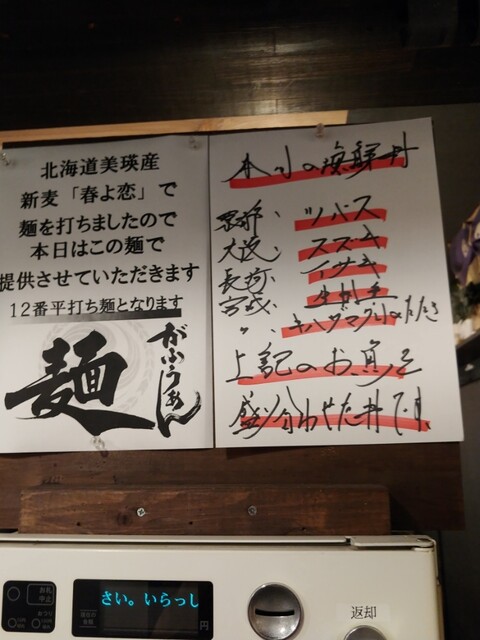 北海道美瑛産
新麦「春よ恋」で
麺を打ちましたので
本日はこの麺で
提供させていただきます
12番平打ち麺となります
麺
がふうあん
本日の海鮮丼
京都、ツバス
大阪、スズキ
長崎、イサキ
宮城、生
〃、キハダマグロのたたき
上記のお魚を
盛り合わせた丼です。
お札
中止
おつり
現在の
金額
さい。いらっし
円
返却